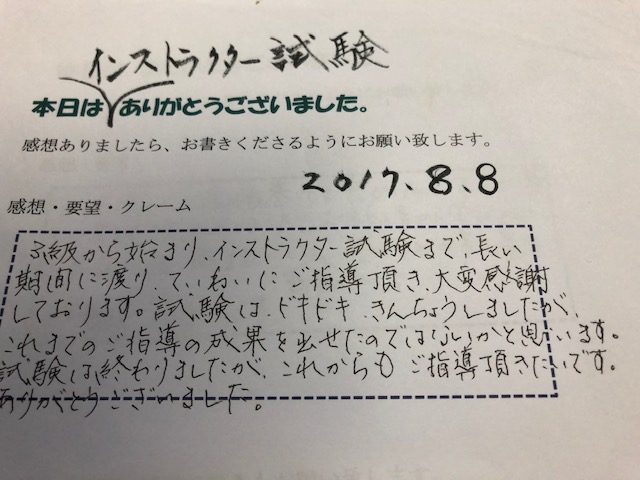 インストラクター試験
本日は ありがとうございました。
感想ありましたら、お書きくださるようにお願い致します。
2017.8.8
感想・要望・クレーム
3級から始まり、インストラクター試験まで、長い
期間に渡り、ていねいにご指導頂き、大変感謝
しております。試験は、ドキドキ、きんちょうしましたが、
これまでのご指導の成果を出せたのではないかと思います。
試験は終わりましたが、これからもご指導頂きたいです。
ありがとうございました。